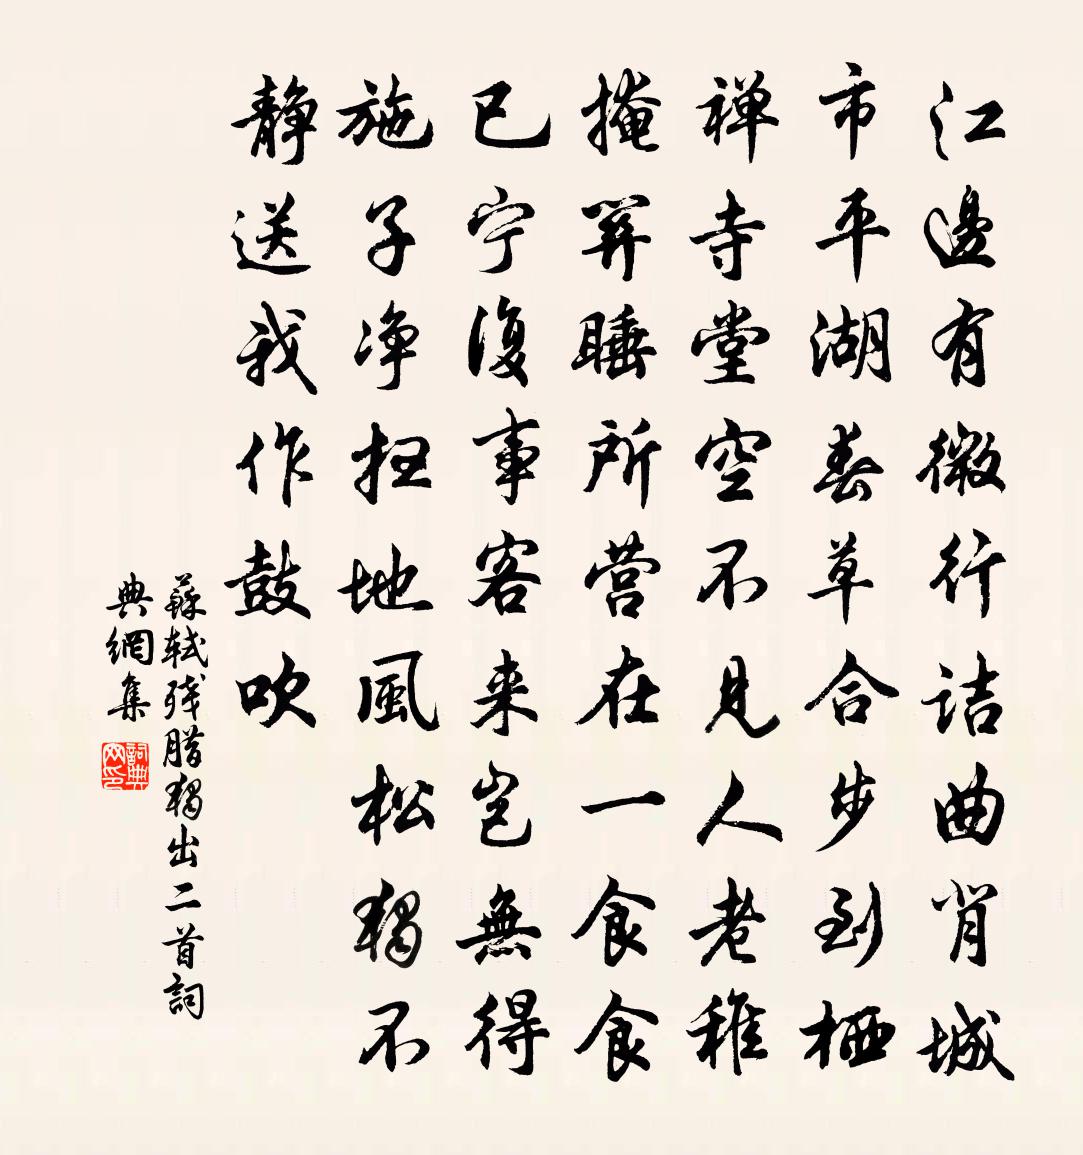 江邊有微行詰曲背城
市平湖春草合步到栖
禅寺堂空不見人老稚
掩關睡所营在一食食
已宁復事客来岂無得
施子净扫地風松獨不
静送我作鼓吹
蘇軾残腊獨出二首詞
典網集
詞典网印